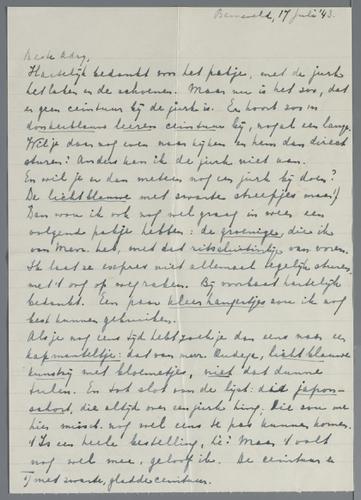 Barneveld, 17 Juli '43.
Beste Adry,
Hartelijk bedankt voor het pakje, met de jurk
het laken en de schoenen. Maar nu is het zoo, dat
er geen ceintuur bij de jurk is. Er hoort zoo'n
donkerblauwe leeren ceintuur bij, nogal een lange.
Wil je daar nog even naar kijken en hem dan direct
sturen? Anders kan ik de jurk niet aan.
En wil je er dan meteen nog een jurk bij doen?
De lichtblauwe met zwarte streepjes maar. 1)
Dan wou ik ook nog wel graag in een
volgende pakje hebben: de groenige, die ik
van Mevr. heb, met dat ritssluitinkje van voren.
Ik laat ze expres niet allemaal tegelijk sturen,
met 't oog op wegraken. Bij voorbaat hartelijk
bedankt. Een paar kleerhangertjes zou ik nog
best kunnen gebruiken.
Als je nog eens tijd hebt, zoek je dan eens naar een
kapmanteltje: dat van mevr. Oudege, lichtblauwe
kunstzij met bloemetjes, niet dat dunne
tulen. En tot slot van de lijst: die japon-
schort, die altijd over een jurk hing. Die zou me
hier missch. nog wel eens te pas kunnen komen.
't Is een heele bestelling, hè? Maar 't valt
nog wel mee, geloof ik. De ceintuur en
1) met zwarte, gladde ceintuur.